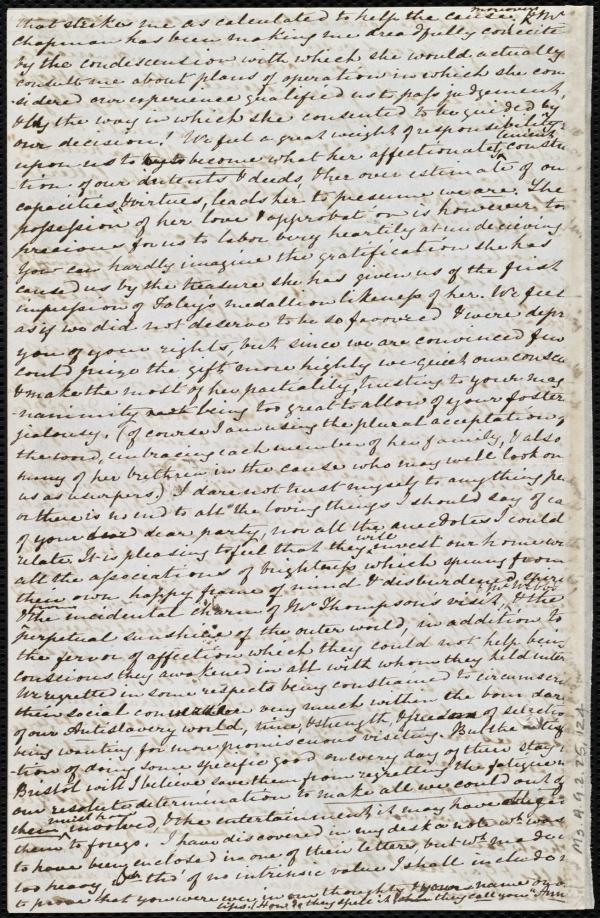 that strikes me as calculated to help the cause. moreover Mrs
Chapman has been making me dreadfully conceite
by the condescension with which she would actually
consult me about plans of operation in which she con
sidered our experience qualified us to pass judgement,
& by the way in which she consented to be guided by
our decision! We feel a great weight of responsibility
upon us to become what her affectionate, lenient, constru
-tion of our intents & deeds, & her over estimate of our
capacities & virtues, leads her to presume we are. The
possession of her love & approbation is however too
precious for us to labor very heartily at undeceiving
You can hardly imagine the gratification she has
caused us by the treasure she has given us of the first
impression of Foley's medallion likeness of her. We feel
as if we did not deserve to be so favored & were depr
you of your rights, but since we are convinced few
could prize the gift more highly we quiet our conscie
& make the most of her partiality, trusting to your mag
nanimity being too great to allow of your foster
jealousy. (Of course I am using the plural acceptation of
the word, embracing each member of her family, & also
many of her brethren in the cause who may well look on
us as usurpers) I dare not trust myself to anything
or there is no end to all the loving things I should say of
of your dear party, nor all the anecdotes I could
relate. It is pleasing to feel that they will invest our home with
all the associations of brightness which spring from
their own happy frame of mind & disburdened spiri
& from the incidental charm of Mr Thompson's visit, & the
perpetual sunshine of the outer world, in addition to
the fervor of affection which they could not help being
conscious they awakened in all with whom they held inter
We regretted in some respects being constrained to circumscri
their social very much within the boundar
of our Antislavery world, time, & strength, & freedom of selection
being wanting for more promiscuous visiting. But the
-tion of doing some specific good on every day of their stay in
Bristol will I believe save them from regretting the fatigue
our resolute determination to make all we could out of
them must have involved, & the entertainment it may have obliged
them to forego. I have discovered in my desk a note wh was
to have been enclosed in one of their letters, but wh
too heavy, & tho' of no intrinsic value I shall include
to prove that you were in our thoughts & your name on
lips. (How do they spell it when they call you "Ann
Ms.A.9.2.25,124